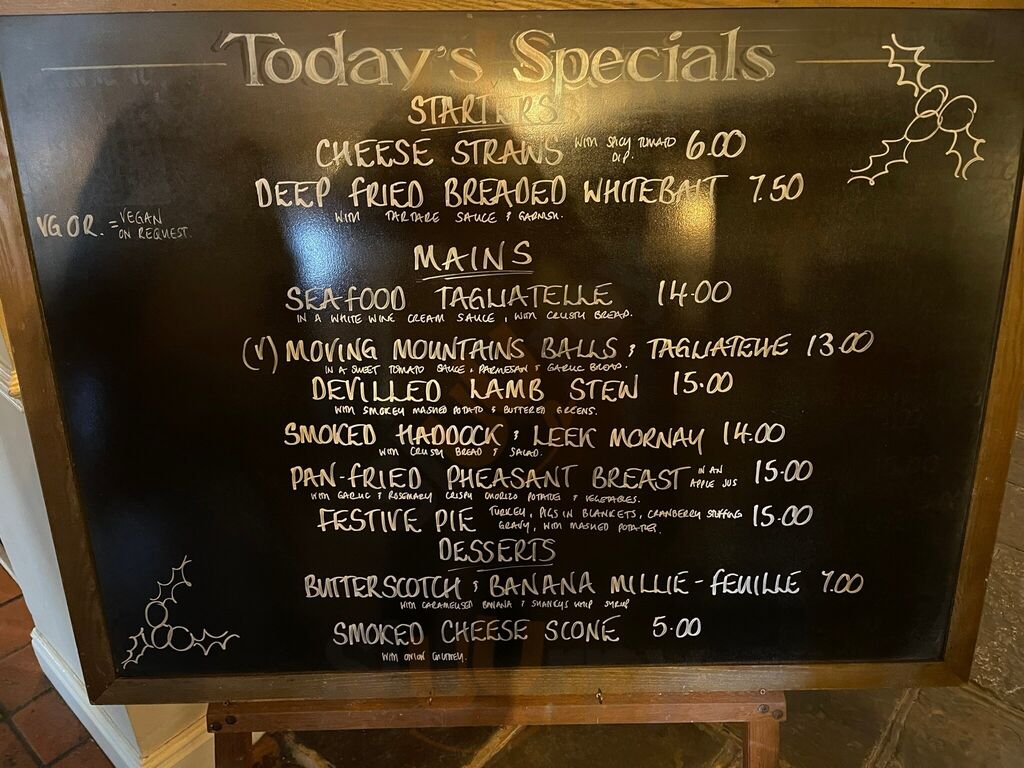 Today's Specials
STARTERS
CHEESE STRAWS WITH SPICY TOMATO DIP. 6.00
DEEP FRIED BREADED WHITEBAIT 7.50
WITH TARTARE SAUCE & GARNISH.
VGOR. = VEGAN ON REQUEST.
MAINS
SEAFOOD TAGLIATELLE 14.00
IN A WHITE WINE CREAM SAUCE, WITH CRUSTY BREAD.
(V) MOVING MOUNTAINS BALLS & TAGLIATELLE 13.00
IN A SWEET TOMATO SAUCE, PARMESAN & GARLIC BREAD.
DEVILLED LAMB STEW 15.00
WITH SMOKEY MASHED POTATO & BUTTERED GREENS.
SMOKED HADDOCK & LEEK MORNAY 14.00
WITH CRUSTY BREAD & SALAD.
PAN-FRIED PHEASANT BREAST IN AN APPLE JUS 15.00
WITH GARLIC & ROSEMARY CRISPY CHORIZO POTATOES & VEGETABLES.
FESTIVE PIE TURKEY, PIGS IN BLANKETS, CRANBERRY STUFFING 15.00
GRAVY, WITH MASHED POTATOES.
DESSERTS
BUTTERSCOTCH & BANANA MILLIE-FEUILLE 7.00
WITH CARAMELISED BANANA & SHANKYS WHIP SYRUP
SMOKED CHEESE SCONE 5.00
WITH ONION CHUTNEY.